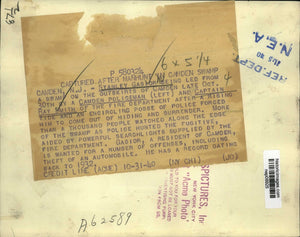 P 580326
CAPTURED AFTER MANHUNT IN CAMDEN SWAMP
CAMDEN, N.J. -- STANLEY GADIOR BEING LED FROM
A SWAMP ON THE OUTSKIRTS OF CAMDEN LATE OCT.
30TH BY A CAMDEN POLICEMAN (LEFT) AND CAPTAIN
RAY SMITH OF THE FIRE DEPARTMENT AFTER A RISING
TIDE AND AN ENCIRCLING POSSE OF POLICE FORCED
HIM TO COME OUT OF HIDING AND SURRENDER. MORE
THAN A THOUSAND PEOPLE WATCHED ALONG THE EDGE
OF THE SWAMP AS POLICE HUNT THE FUGITIVE,
AIDED BY POWERFUL SEARCHLIGHTS SUPPLIED BY THE
FIRE DEPARTMENT. GADIOR, A RESIDENT OF CAMDEN,
IS WANTED FOR A NUMBER OF OFFENSES, INCLUDING
THEFT OF AN AUTOMOBILE. HE HAS A RECORD DATING
BACK TO 1932.
CREDIT LINE (ACME) 10-31-40 (NY CHI) (JO)
6 x 5 1/4
REF-DEPT
N.E.A.
PICTURES, Inc
"Acme Photo"
NEW YORK CITY
A62589